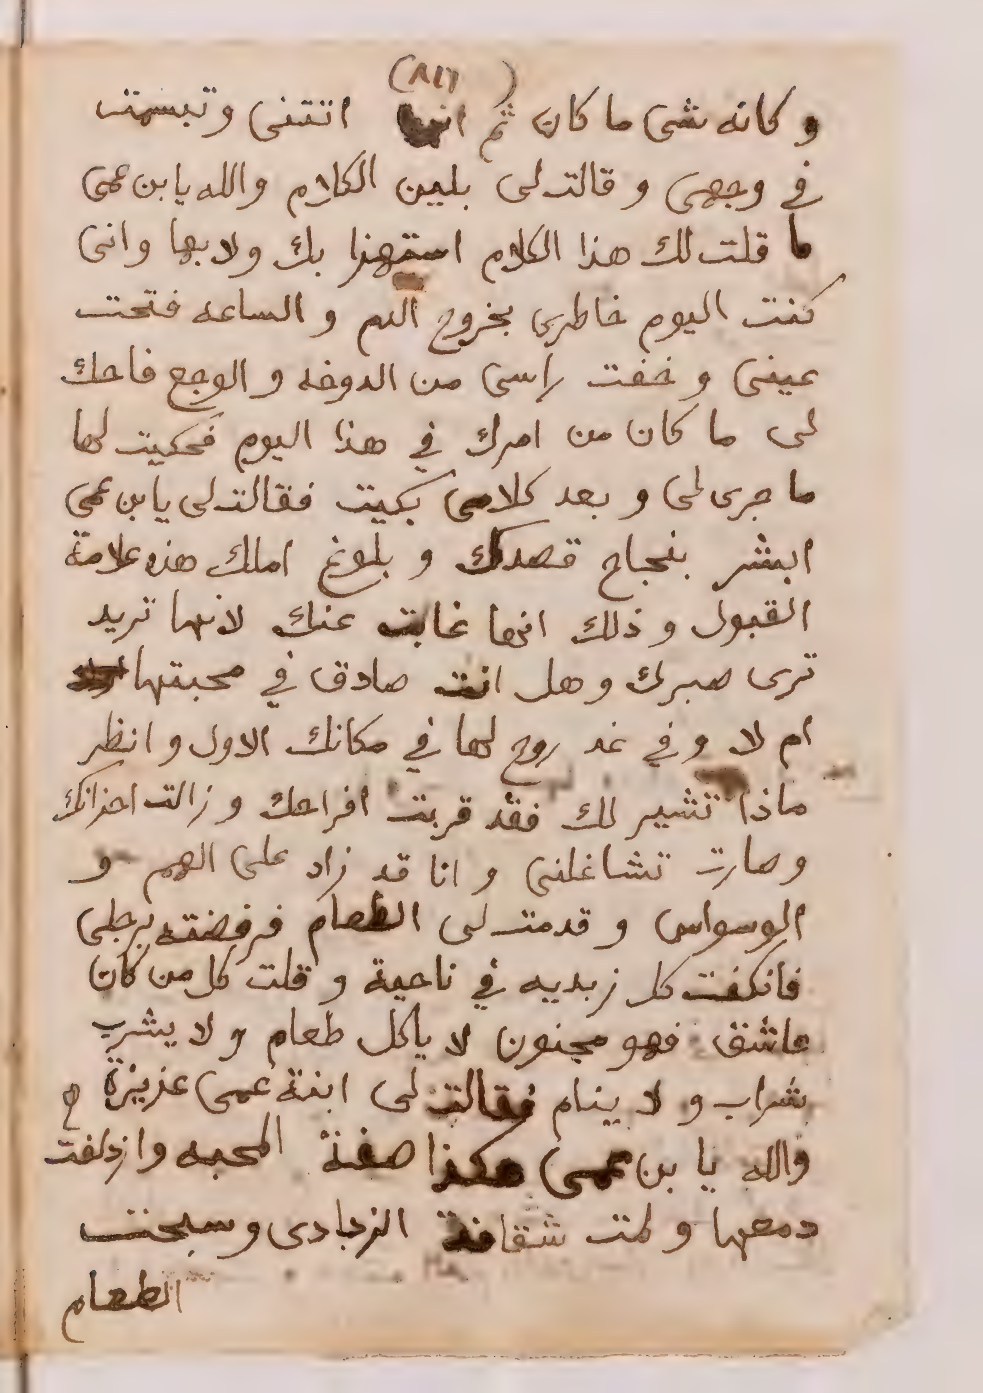 (٨١٦)
و كانه شى ما كان ثم انها اتتنى وتبسمت
في وجهى و قالت لى بلين الكلام والله يا بن عمى
ما قلت لك هذا الكلام استهزا بك ولا بها وانى
كنت اليوم خاطرى بخروج الدم و الساعه فتحت
عينى و خفت راسى من الدوخه و الوجع فاحك
لى ما كان من امرك في هذا اليوم فحكيت لها
ما جرى لى و بعد كلامى بكيت فقالت لى يا بن عمى
ابشر بنجاح قصدك و بلوغ املك هذه علامة
القبول و ذلك انها غابت عنك لانها تريد
ترى صبرك وهل انت صادق في محبتها
ام لا وفي غد روح لها في مكانك الاول و انظر
ماذا تشير لك فقد قربت افراحك و زالت احزانك
وصارت تشاغلنى و انا قد زاد على الهم و
الوسواس و قدمت لى الطعام فرفضته برجلى
فانكفت كل زبديه في ناحية و قلت كل من كان
عاشق فهو مجنون لا ياكل طعام و لا يشرب
شراب و لا ينام فقالت لى ابنة عمى عزيزة
والله يا بن عمى هكذا صفة المحبه وازلفت
دمعها و لمت شقافة الزبادى و سبحت
الطعام